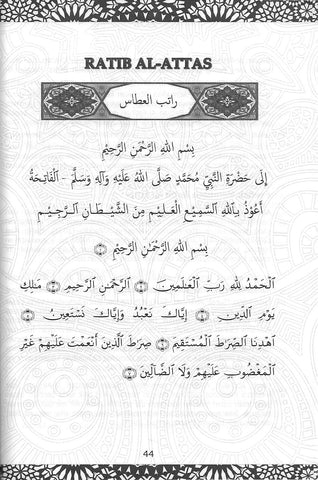 RATIB AL-ATTAS
راتب العطاس
بِسْمِ اللهِ الرَّحْمٰنِ الرَّحِيْمِ
إِلَى حَضْرَةِ النَّبِيِّ مُحَمَّدٍ صَلَّى اللهُ عَلَيْهِ وَآلِهِ وَسَلَّمَ - الْفَاتِحَةُ
أَعُوْذُ بِاللهِ السَّمِيْعِ الْعَلِيْمِ مِنَ الشَّيْطَانِ الرَّجِيْمِ
بِسْمِ اللهِ الرَّحْمٰنِ الرَّحِيْمِ ۝١
اَلْحَمْدُ لِلّٰهِ رَبِّ الْعٰلَمِيْنَ ۝٢ الرَّحْمٰنِ الرَّحِيْمِ ۝٣ مٰلِكِ
يَوْمِ الدِّيْنِ ۝٤ إِيَّاكَ نَعْبُدُ وَإِيَّاكَ نَسْتَعِيْنُ ۝٥
اهْدِنَا الصِّرَاطَ الْمُسْتَقِيْمَ ۝٦ صِرَاطَ الَّذِيْنَ أَنْعَمْتَ عَلَيْهِمْ غَيْرِ
الْمَغْضُوْبِ عَلَيْهِمْ وَلَا الضَّالِّيْنَ ۝٧
44